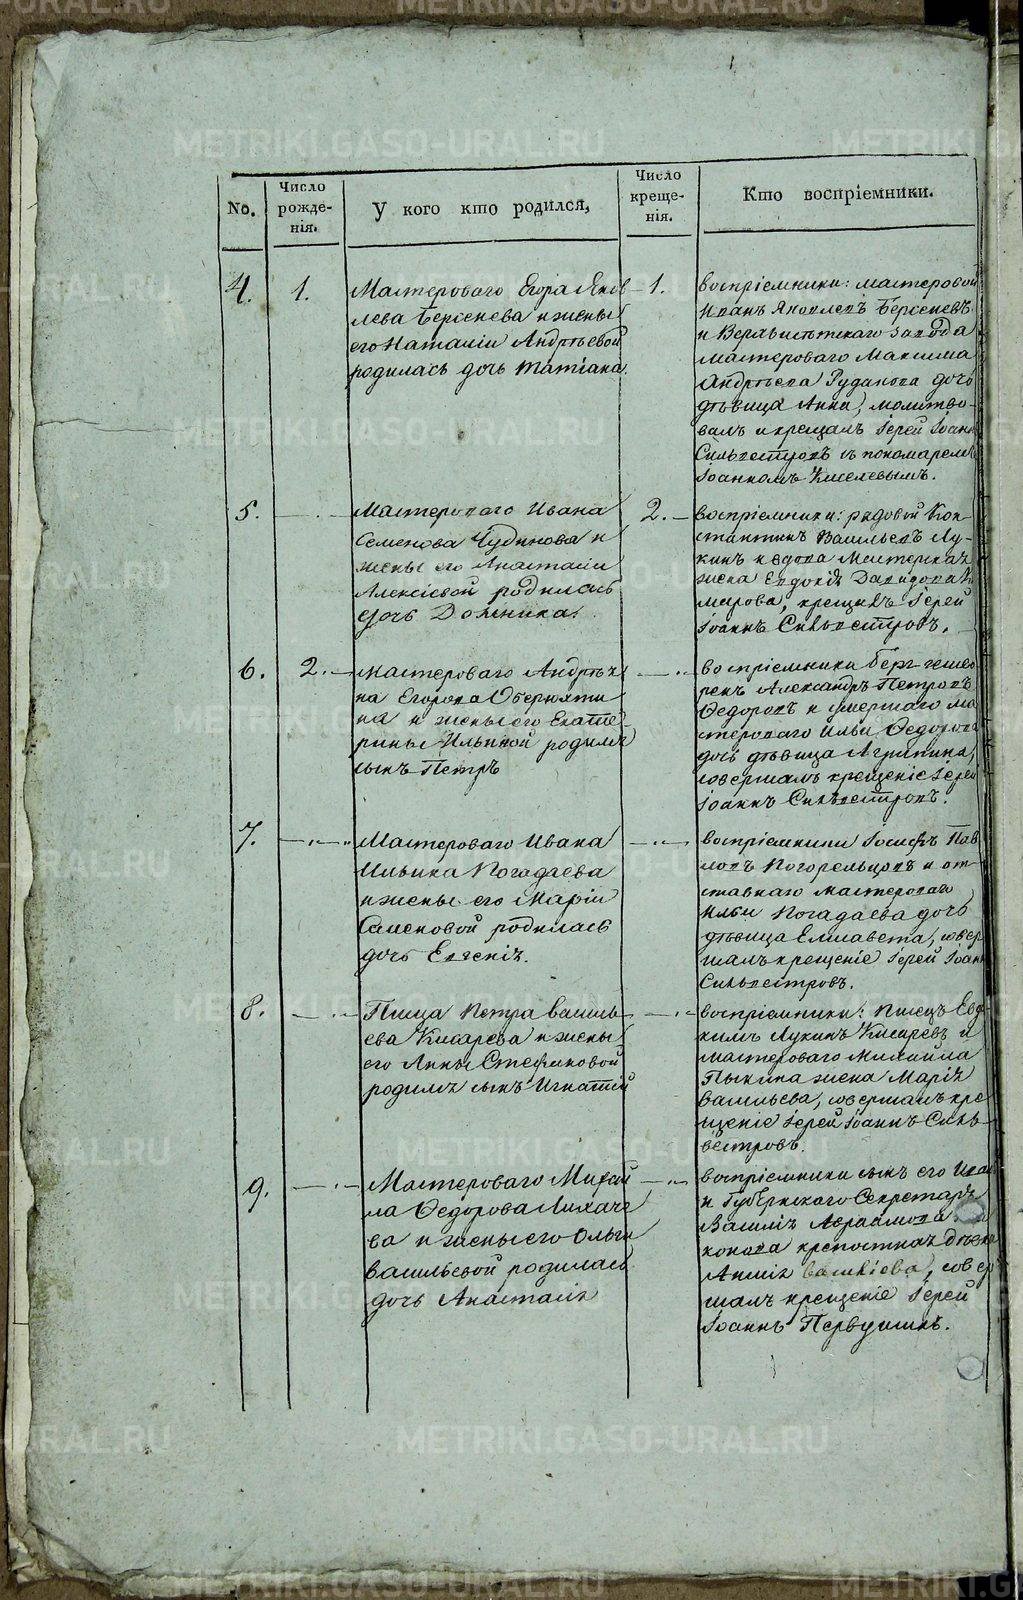 No.
Число
рожде-
нія.
У кого кто родился,
Число
креще-
нія.
Кто воспріемники.
4.
1.
Мастероваго Егора Яков
лева Берсенева и жены
его Наталіи Андрѣевой
родилась дочь Татіана.
1.
воспріемники: мастеровой
Иванъ Яковлевъ Берсеневъ
и Верхъисетскаго завода
мастероваго Максима
Андрѣева Рудакова дочь
дѣвица Анна, молитво-
валъ и крещалъ Іерей Іоаннъ
Сильвестровъ съ пономаремъ
Іоанномъ Киселевымъ.
5.
Мастероваго Ивана
Семенова Чудинова и
жены его Анастасіи
Алексіевой родилась
дочь Домника.
2.
воспріемники: рядовой Кон-
стантинъ Васильевъ Лу-
кинъ и вдова Мастерска
жена Евдокія Давидова
марова, крещалъ Іерей
Іоаннъ Сильвестровъ.
6.
2.
мастероваго Андрѣя
на Егорова Оберюхти
на и жены его Екате-
рины Ильиной родился
сынъ Петръ
воспріемники берг-гешво
ренъ Александръ Петровъ
Ѳедоровъ и умершаго ма
стероваго Ильи Ѳедорова
дочь дѣвица Агрипина,
совершалъ крещеніе Іерей
Іоаннъ Сильвестровъ.
7.
Мастероваго Ивана
Ильина Погадаева
и жены его Маріи
Семеновой родилась
дочь Евгенія.
воспріемники Іосифъ Пав
ловъ Погорельцовъ и от-
ставнаго мастероваго
Ильи Погадаева дочь
дѣвица Елисавета, совер
шалъ крещеніе Іерей Іоаннъ
Сильвестровъ.
8.
Писца Петра Василь
ева Кисарева и жены
его Анны Стефановой
родился сынъ Игнатій
воспріемники: писецъ Евдо
кимъ Лукинъ Кисаревъ и
мастероваго Михайла
Пькина жена Марія
Васильева, совершалъ кре
щеніе Іерей Іоаннъ Силь-
вестровъ.
9.
Мастероваго Михай
ла Ѳедорова Лихаче
ва и жены его Ольги
Васильевой родилась
дочь Анастасія
воспріемники сынъ его Иван
и Губернскаго Секретаря
Василія Авраамова
конова крепостная дѣвка
Анисія Васильева, совер
шалъ крещеніе Іерей
Іоаннъ Первушинъ.
METRIKI.GASO-URAL.RU